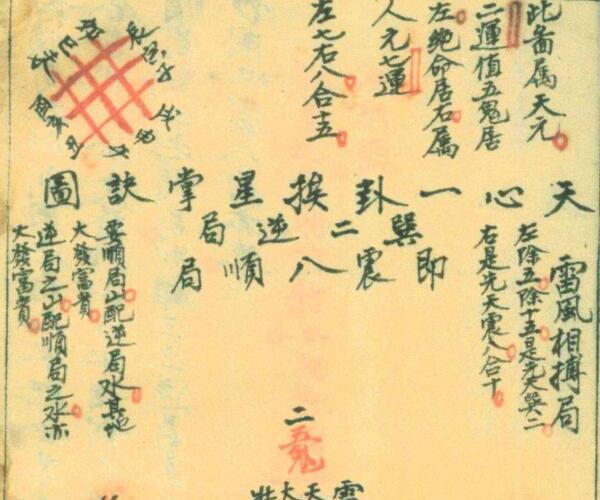 此啚属天元
二運值五鬼居
左绝命居右属
人元七運
左七右八合十五
天心一卦挨星掌訣圖
即巽二逆局
震八順局
雷風相搏局
左除五除十五曰是先天巽二
右是先天震八合十
要順局山配逆局水其地
大發富貴
逆局之山配順局之水亦
大發富貴
二
五鬼
雷天大壯